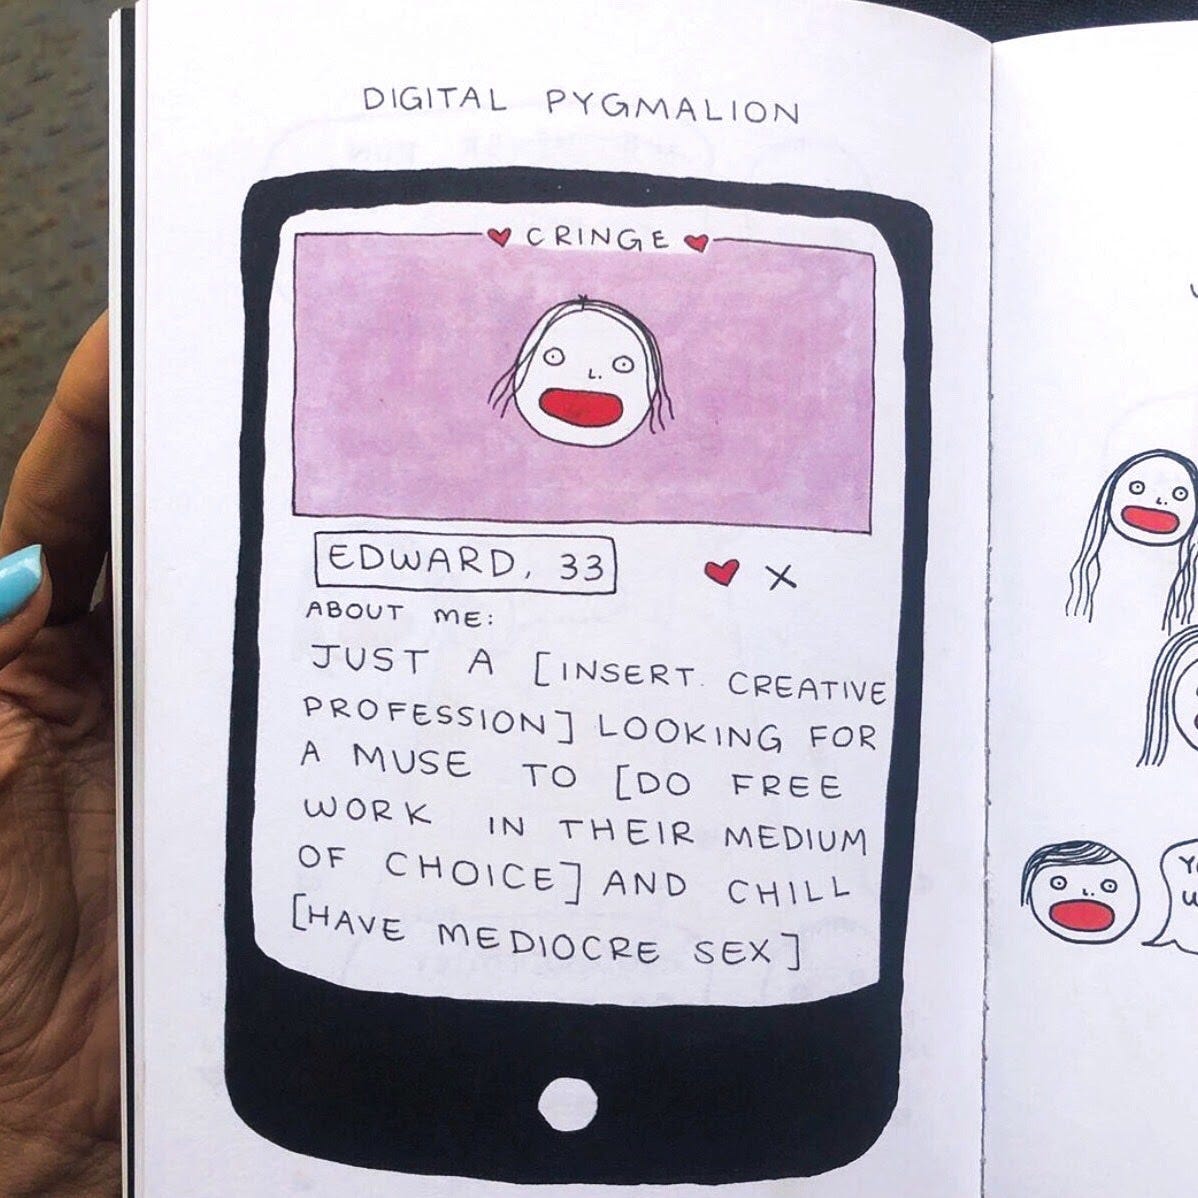 DIGITAL PYGMALION
CRINGE
EDWARD, 33
X
ABOUT ME:
JUST A [INSERT CREATIVE
PROFESSION] LOOKING FOR
A MUSE TO [DO FREE
WORK IN THEIR MEDIUM
OF CHOICE] AND CHILL
[HAVE MEDIOCRE SEX]